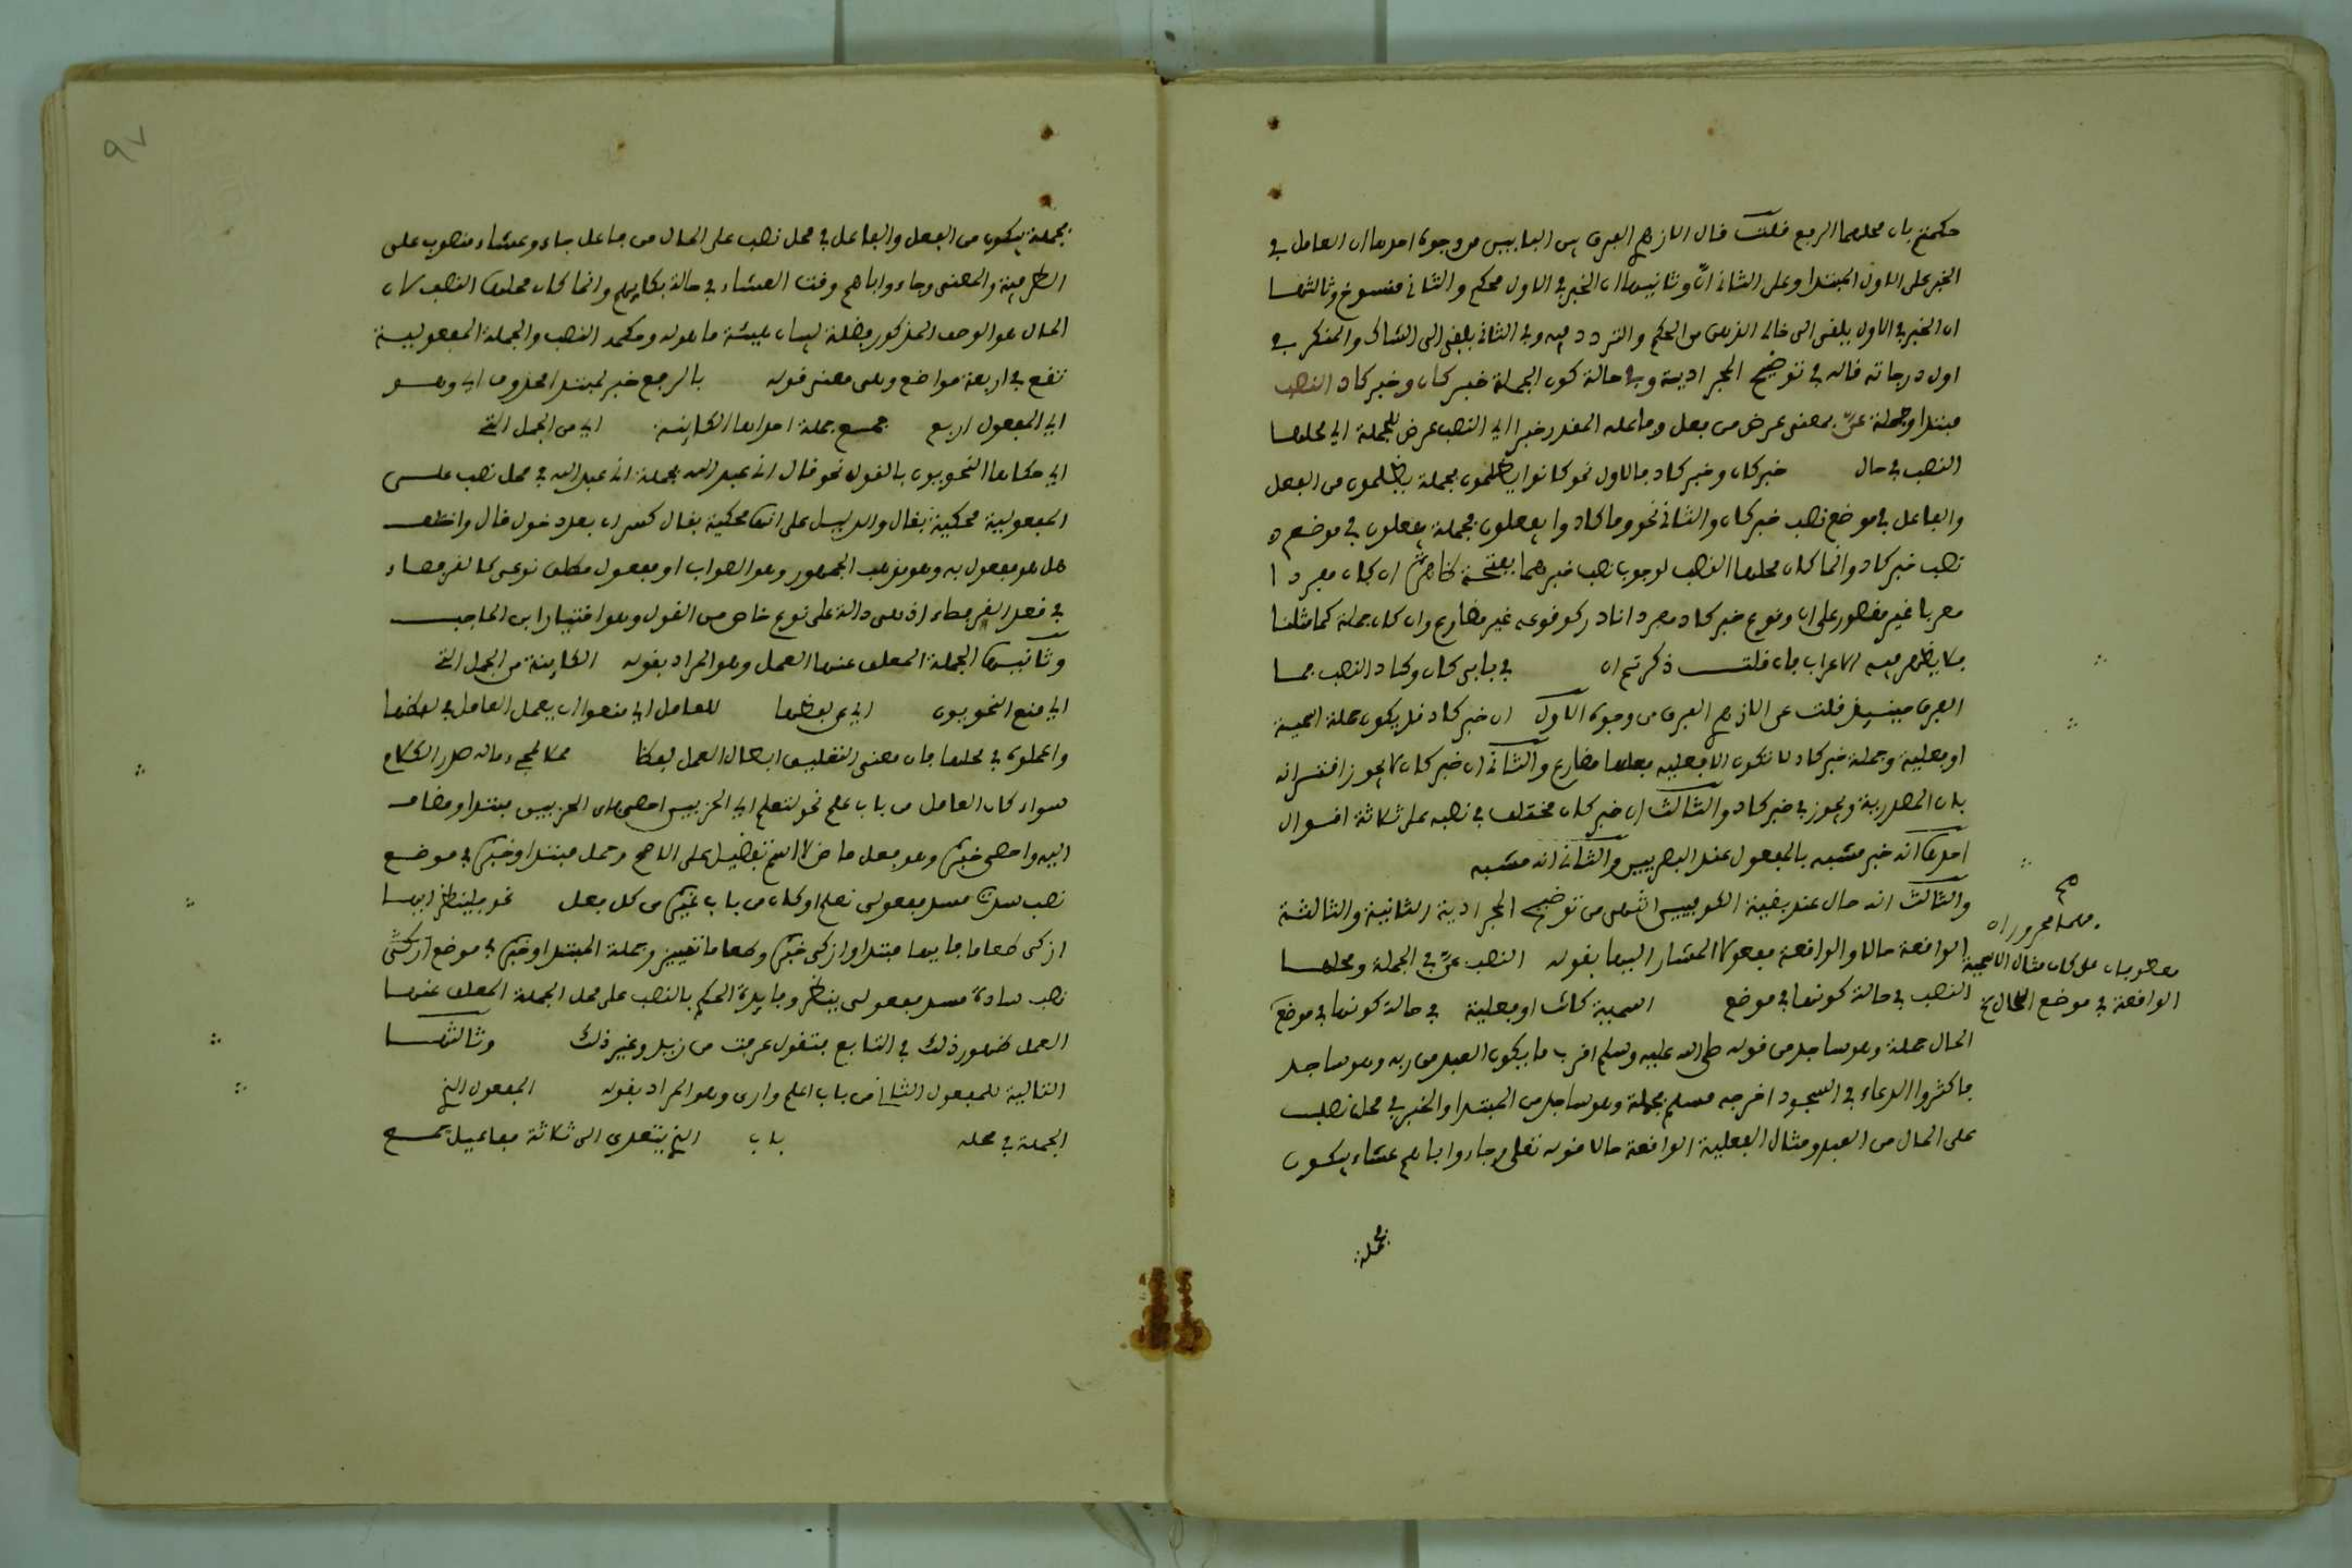 حكمتم بان محلهما الرفع قلت قال الازهري الفرق بين البابين من وجوه احدها ان العامل في
الخبر على الاول المبتدا وعلى الثاني ان وثانيها ان الخبر في الاول محكم والثاني منسوخ وثالثها
ان الخبر في الاول يلقى الى خالي الذهن من الحكم والتردد فيه وفي الثاني يلقى الى الشاك والمنكر في
اول درجاته قاله في توضيح المجرادية وفي حالة كون الجملة خبر كان وخبر كاد النصب
مبتدا وجملة عنّ بمعنى عرض من فعل وفاعله المقدر خبرا اي النصب عرض للجملة اي محلها
النصب في حال خبر كان وخبر كاد فالاول نحو كانوا يظلمون فجملة يظلمون من الفعل
والفاعل في موضع نصب خبر كان والثاني نحو وما كادوا يفعلون فجملة يفعلون في موضع
نصب خبر كاد وانما كان محلها النصب لوجوب نصب خبرهما بفتحة ظاهرة ان كان مفردا
معربا غير مقصور على ان وقوع خبر كاد مفردا نادر كوقوعه غير مضارع وان كان جملة كما مثلنا
فلا يظهر فيه الاعراب فان قلت ذكرتم ان في بابي كان وكاد النصب فما
الفرق حينئذ قلت عن الازهري الفرق من وجوه الاول ان خبر كان قد يكون جملة اسمية
او فعلية وجملة خبر كاد لا تكون الا فعلية فعلها مضارع والثاني ان خبر كان لا يجوز اقترانه
بان المصدرية ويجوز في خبر كاد والثالث ان خبر كان مختلف في نصبه على ثلاثة اقوال
احدها انه خبر مشبه بالمفعول عند البصريين والثاني انه مشبه
والثالث انه حال عند بقية الكوفيين انتهى من توضيح المجرادية الثانية والثالثة
الواقعة حالا والواقعة مفعولا المشار اليها بقوله النصب عنّ في الجملة ومحلها
النصب في حالة كونها في موضع اسمية كانت او فعلية في حالة كونها في موضع
الحال جملة وهو ساجد من قوله صلى الله عليه وسلم اقرب ما يكون العبد من ربه وهو ساجد
فاكثروا الدعاء في السجود اخرجه مسلم فجملة وهو ساجد من المبتدا والخبر في محل نصب
على الحال من العبد ومثال الفعلية الواقعة حالا قوله تعلى وجاءوا اباهم عشاء يبكون
مجرور ان
معطوفان على كان مثال الاسمية
الواقعة في موضع الحال
فجملة
٩٧
فجملة يبكون من الفعل والفاعل في محل نصب على الحال من فاعل جاء وعشاء منصوب على
الظرفية والمعنى وجاءوا اباهم وقت العشاء في حالة بكايهم وانما كان محلها النصب لان
الحال هو الوصف المذكور فضلة لبيان هيئة ما هو له وحكمه النصب والجملة المفعولية
تقع في اربعة مواضع وهي معنى قوله بالرفع خبر لمبتدا محذوف اي وهو
اي المفعول اربع جمع جملة احداها الكاينة اي من الجمل التي
اي حكاها النحويون بالقول نحو قال اني عبد الله فجملة اني عبد الله في محل نصب على
المفعولية محكية بقال والدليل على انها محكية بقال كسر ان بعد دخول قال واختلف
هل هو مفعول به وهو مذهب الجمهور وهو الصواب او مفعول مطلق نوعي كالقرفصاء
في قعد القرفصاء اذ هي دالة على نوع خاص من القول وهو اختيار ابن الحاجب
وثانيها الجملة المعلق عنها العمل وهو المراد بقوله الكاينة من الجمل التي
اي منع النحويون اي في لفظها للعامل اي منعوا ان يعمل العامل في لفظها
واعملوه في محلها فان معنى التعليق ابطال العمل لفظا محلا لمجيء ما له صدر الكلام
سواء كان العامل من باب علم نحو لنعلم اي الحزبين احصى فاي الحزبين مبتدا ومضاف
اليه واحصى خبره وهو فعل ماض لا اسم تفضيل على الاصح وجملة مبتدا وخبره في موضع
نصب سدت مسد مفعولي نعلم او كان من باب غيره من كل فعل نحو فلينظر ايها
ازكى طعاما فايها مبتدا وازكى خبره وطعاما تمييز وجملة المبتدا وخبره في موضع
نصب سادة مسد مفعولي ينظر وفايدة الحكم بالنصب على محل الجملة المعلق عنها
العمل ظهور ذلك في التابع فتقول عرفت من زيد وغير ذلك وثالثها
التالية للمفعول الثاني من باب اعلم وارى وهو المراد بقوله المفعول الخ
الجملة في محله باب الخ يتعدى الى ثلاثة مفاعيل